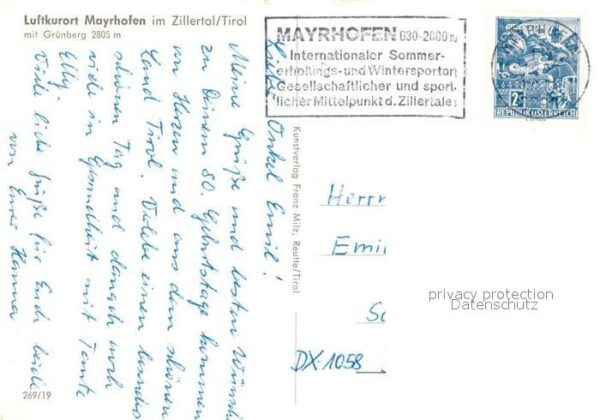 Luftkurort Mayrhofen im Zillertal/Tirol
mit Grünberg 2805 m
Lieber Onkel Emil!
Meine Grüße und besten Wünsche
zu Deinem 80. Geburtstage kommen
von Herzen und aus dem schönen
Land Tirol. Verlebe einen besonders
schönen Tag und danach noch
viele in Gesundheit mit Tante
Elly.
Viele liebe Grüße für Euch beide
von Eurer Hanna
269/19
Kunstverlag Franz Milz, Reutte/Tirol
MAYRHOFEN 630-2000 m
Internationaler Sommer-
erholungs- und Wintersportort
Gesellschaftlicher und sport-
licher Mittelpunkt d. Zillertales
MAYRHOFEN
2
REPUBLIK ÖSTERREICH
Herrn
Emil
DX-1058
privacy protection
Datenschutz